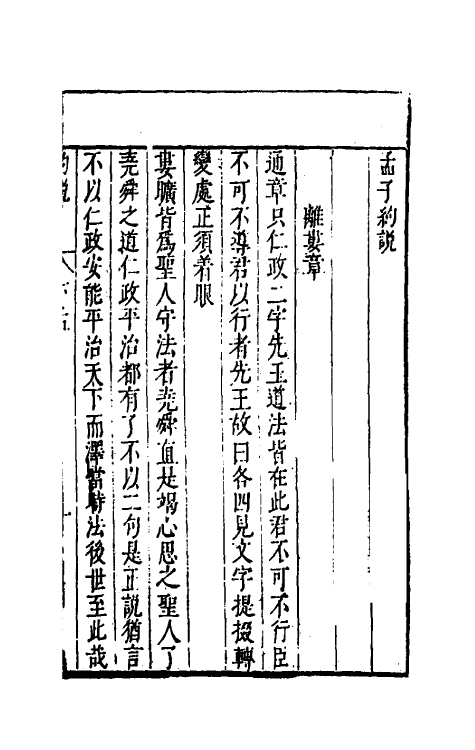 孟子約説
離婁章
通章只仁政二字先王道法皆在此君不可不行臣
不可不導君以行者先王故曰各四見文字提掇轉
變處正須着眼
婁曠皆爲聖人守法者堯舜直是竭心思之聖人了
堯舜之道仁政平治都有了不以二句是正説猶言
不以仁政安能平治天下而澤當時法後世至此哉
約説